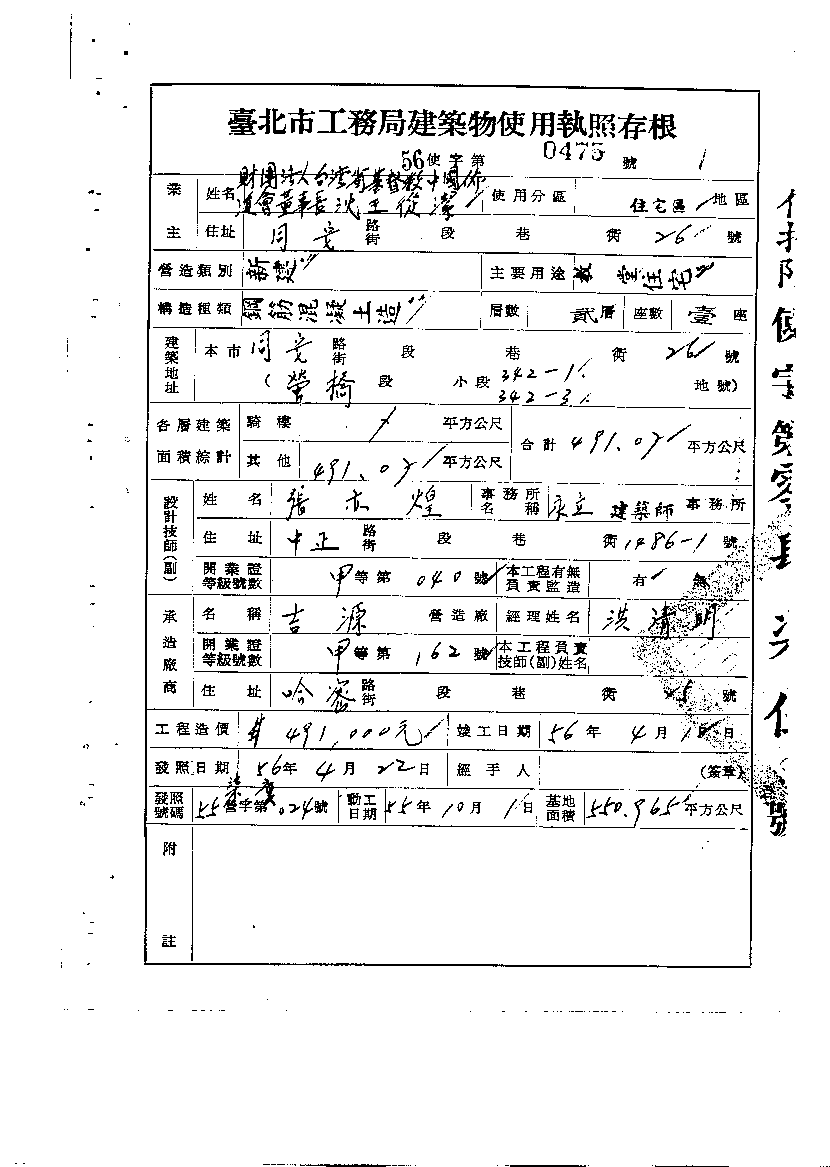 臺北市工務局建築物使用執照存根
56使字第 0475 號
業主 姓名 財團法人台灣省基督教中國佈道會董事長沈王俊潔 使用分區 住宅區 地區
住址 同安 路街 段 巷 衖 26 號
營造類別 新建 主要用途 教堂住宅
構造種類 鋼筋混凝土造 層數 貳層 座數 壹座
建築地址 本市 同安 路街 段 巷 衖 26 號
(營橋 段 小段 342-1 342-3 地號)
各層建築面積綜計 騎樓 平方公尺 合計 491.07 平方公尺
其他 491.07 平方公尺
設計技師(副) 姓名 張亦煌 事務所名稱 永立 建築師事務所
住址 中正 路街 段 巷 衖 1486-1 號
開業證等級號數 甲等第 040 號 本工程有無負責監造 有 無
承造廠商 名稱 吉源 營造廠 經理姓名 洪清明
開業證等級號數 甲等第 162 號 本工程負責技師(副)姓名
住址 哈密 路街 段 巷 衖 5 號
工程造價 491,000元 竣工日期 56年 4月 日
發照日期 56年 4月 22日 經手人 (簽章)
發照號碼 55營字第 024號 動工日期 55年 10月 1日 基地面積 550.965 平方公尺
附註